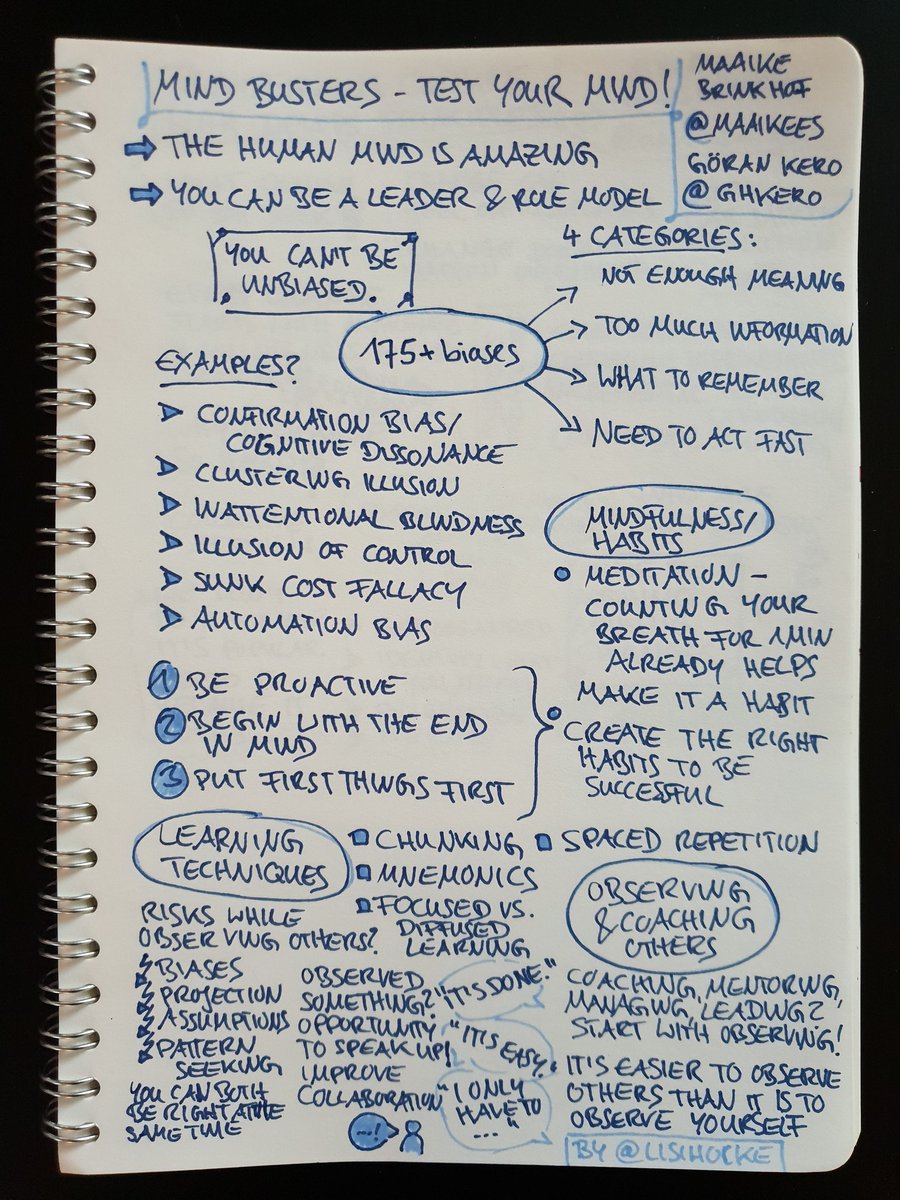 MIND BUSTERS - TEST YOUR MIND!
MAAIKE
BRINKHOF
@MAAIKEES
GÖRAN KERO
@GHKERO
THE HUMAN MIND IS AMAZING
YOU CAN BE A LEADER & ROLE MODEL
YOU CAN'T BE
UNBIASED.
175+ biases
4 CATEGORIES:
NOT ENOUGH MEANING
TOO MUCH INFORMATION
WHAT TO REMEMBER
NEED TO ACT FAST
EXAMPLES?
CONFIRMATION BIAS/
COGNITIVE DISSONANCE
CLUSTERING ILLUSION
INATTENTIONAL BLINDNESS
ILLUSION OF CONTROL
SUNK COST FALLACY
AUTOMATION BIAS
MINDFULNESS/
HABITS
MEDITATION -
COUNTING YOUR
BREATH FOR 1MIN
ALREADY HELPS
MAKE IT A HABIT
CREATE THE RIGHT
HABITS TO BE
SUCCESSFUL
1 BE PROACTIVE
2 BEGIN WITH THE END
IN MIND
3 PUT FIRST THINGS FIRST
LEARNING
TECHNIQUES
CHUNKING
MNEMONICS
FOCUSED VS.
DIFFUSED
LEARNING
SPACED REPETITION
OBSERVING
& COACHING
OTHERS
RISKS WHILE
OBSERVING OTHERS?
BIASES
PROJECTION
ASSUMPTIONS
PATTERN
SEEKING
YOU CAN BOTH
BE RIGHT AT THE
SAME TIME
OBSERVED
SOMETHING?
OPPORTUNITY
TO SPEAK UP!
IMPROVE
COLLABORATION
...!
"IT'S DONE."
"IT'S EASY."
"I ONLY
HAVE TO
..."
COACHING, MENTORING,
MANAGING, LEADING?
START WITH OBSERVING!
IT'S EASIER TO OBSERVE
OTHERS THAN IT IS TO
OBSERVE YOURSELF
BY @LISIHOCKE